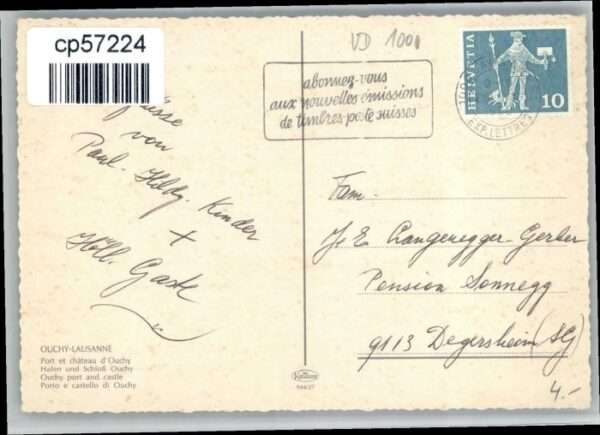 cp57224
VD 1001
abonnez-vous
aux nouvelles émissions
de timbres-poste suisses
HELVETIA
10
EXP. LETTRES
von
Paul. Hildy. Kinder
+
Holl. Gaste
Fam.
J. E Langenegger-Gerber
Pension Sonnegg
9113 Degersheim (SG)
4.-
OUCHY-LAUSANNE
Port et château d'Ouchy
Hafen und Schloß Ouchy
Ouchy port and castle
Porto e castello di Ouchy